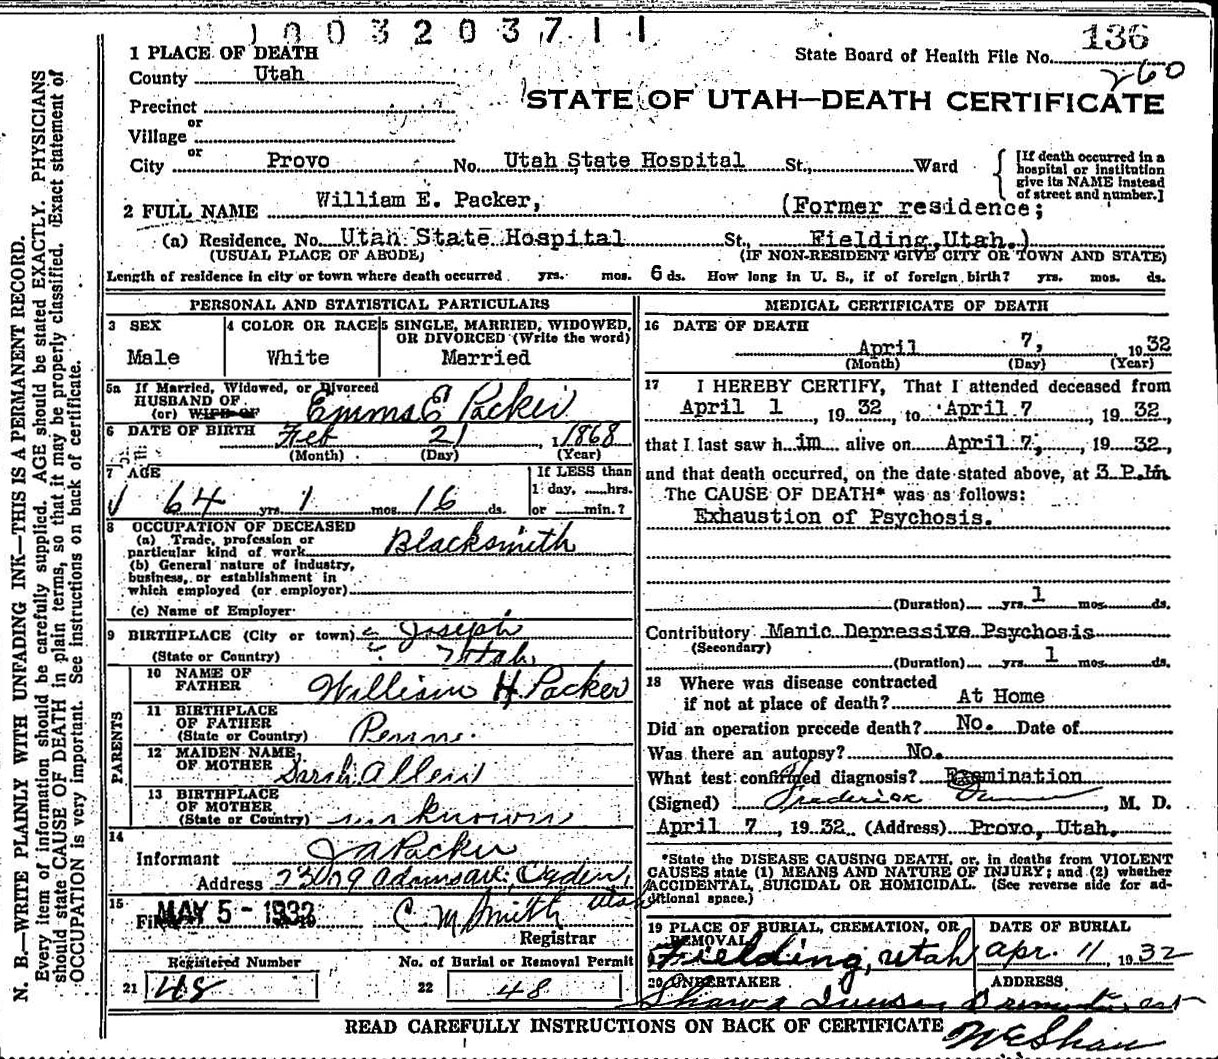 1003203711
136
State Board of Health File No.
260
1 PLACE OF DEATH
County Utah
STATE OF UTAH—DEATH CERTIFICATE
Precinct
or
Village
or
City Provo No. Utah State Hospital St., Ward
[If death occurred in a hospital or institution give its NAME instead of street and number.]
2 FULL NAME William E. Packer, (Former residence;
(a) Residence, No. Utah State Hospital St., Fielding, Utah.)
(USUAL PLACE OF ABODE) (IF NON-RESIDENT GIVE CITY OR TOWN AND STATE)
Length of residence in city or town where death occurred yrs. mos. 6 ds. How long in U. S., if of foreign birth? yrs. mos. ds.
PERSONAL AND STATISTICAL PARTICULARS
3 SEX 4 COLOR OR RACE 5 SINGLE, MARRIED, WIDOWED, OR DIVORCED (Write the word)
Male White Married
5a If Married, Widowed, or Divorced
HUSBAND OF
(or) WIFE OF Emma E Packer
6 DATE OF BIRTH Feb 21 1868
(Month) (Day) (Year)
7 AGE If LESS than
64 yrs. 1 mos. 16 ds. 1 day, hrs.
or min.?
8 OCCUPATION OF DECEASED
(a) Trade, profession or
particular kind of work Blacksmith
(b) General nature of industry,
business, or establishment in
which employed (or employer)
(c) Name of Employer
9 BIRTHPLACE (City or town) Joseph
(State or Country) Utah
PARENTS
10 NAME OF
FATHER William H. Packer
11 BIRTHPLACE
OF FATHER
(State or Country) Penn.
12 MAIDEN NAME
OF MOTHER Sarah Allen
13 BIRTHPLACE
OF MOTHER
(State or Country) unknown
14
Informant J A Packer
Address Adams Ave; Ogden, Utah
15
Filed MAY 5 - 1932 C. M. Smith
Registrar
Registered Number No. of Burial or Removal Permit
21 48 22 48
MEDICAL CERTIFICATE OF DEATH
16 DATE OF DEATH
April 7, 1932
(Month) (Day) (Year)
17 I HEREBY CERTIFY, That I attended deceased from
April 1, 1932, to April 7 1932,
that I last saw h im alive on April 7, 1932,
and that death occurred, on the date stated above, at 3 P.m.
The CAUSE OF DEATH* was as follows:
Exhaustion of Psychosis.
(Duration) yrs. 1 mos. ds.
Contributory Manic Depressive Psychosis
(Secondary)
(Duration) yrs. 1 mos. ds.
18 Where was disease contracted
if not at place of death? At Home
Did an operation precede death? No. Date of
Was there an autopsy? No.
What test confirmed diagnosis? Examination
(Signed) Frederick , M. D.
April 7, 1932 (Address) Provo, Utah.
*State the DISEASE CAUSING DEATH, or, in deaths from VIOLENT
CAUSES state (1) MEANS AND NATURE OF INJURY; and (2) whether
ACCIDENTAL, SUICIDAL OR HOMICIDAL. (See reverse side for ad-
ditional space.)
19 PLACE OF BURIAL, CREMATION, OR REMOVAL DATE OF BURIAL
Fielding, Utah Apr. 11 1932
20 UNDERTAKER ADDRESS
McShaw
READ CAREFULLY INSTRUCTIONS ON BACK OF CERTIFICATE
N. B.—WRITE PLAINLY WITH UNFADING INK—THIS IS A PERMANENT RECORD.
Every item of information should be carefully supplied. AGE should be stated EXACTLY. PHYSICIANS
should state CAUSE OF DEATH in plain terms, so that it may be properly classified. Exact statement of
OCCUPATION is very important. See instructions on back of certificate.